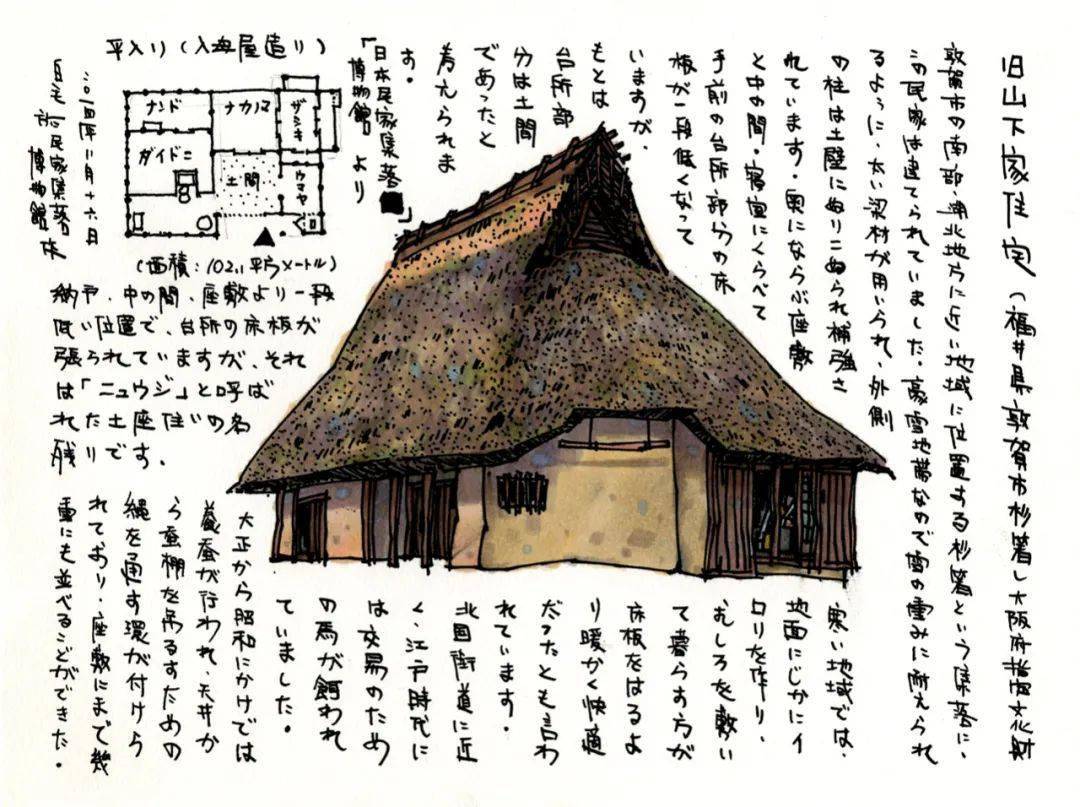 旧山下家住宅(福井県敦賀市杉箸)大阪府指定文化財
敦賀市の南部・湖北地方に近い地域に位置する杉箸という集落に、
この民家は建てられていました。豪雪地帯なので雪の重みに耐えられ
るように、太い梁材が用いられ、外側
の柱は土壁にぬりこめられ補強さ
れています。奥にならぶ座敷
と中の間・寝室にくらべて
手前の台所部分の床
板が一段低くなって
いますが、
もとは
台所部
分は土間
であったと
考えられま
す。
「日本民家集落
博物館」より
平入り(入母屋造り)
ナンド
ナカノマ
ザシキ
ダイドコ
土間
ウマヤ
(面積:102.11平方メートル)
二〇一四年十一月十六日
日本民家集落
博物館
納戸、中の間、座敷より一段
低い位置で、台所の床板が
張られていますが、それ
は「ニュウジ」と呼ば
れた土座住いの名
残りです。
寒い地域では、
地面にじかにイ
ロリを作り、
むしろを敷い
て暮らす方が
床板をはるよ
り暖かく快適
だったとも言わ
れています。
北国街道に近
く、江戸時代に
は交易のため
の馬が飼われ
ていました。
大正から昭和にかけては
養蚕が行われ、天井か
ら蚕棚を吊るすための
縄を通す環が付けら
れており、座敷にまで幾
重にも並べることができた。